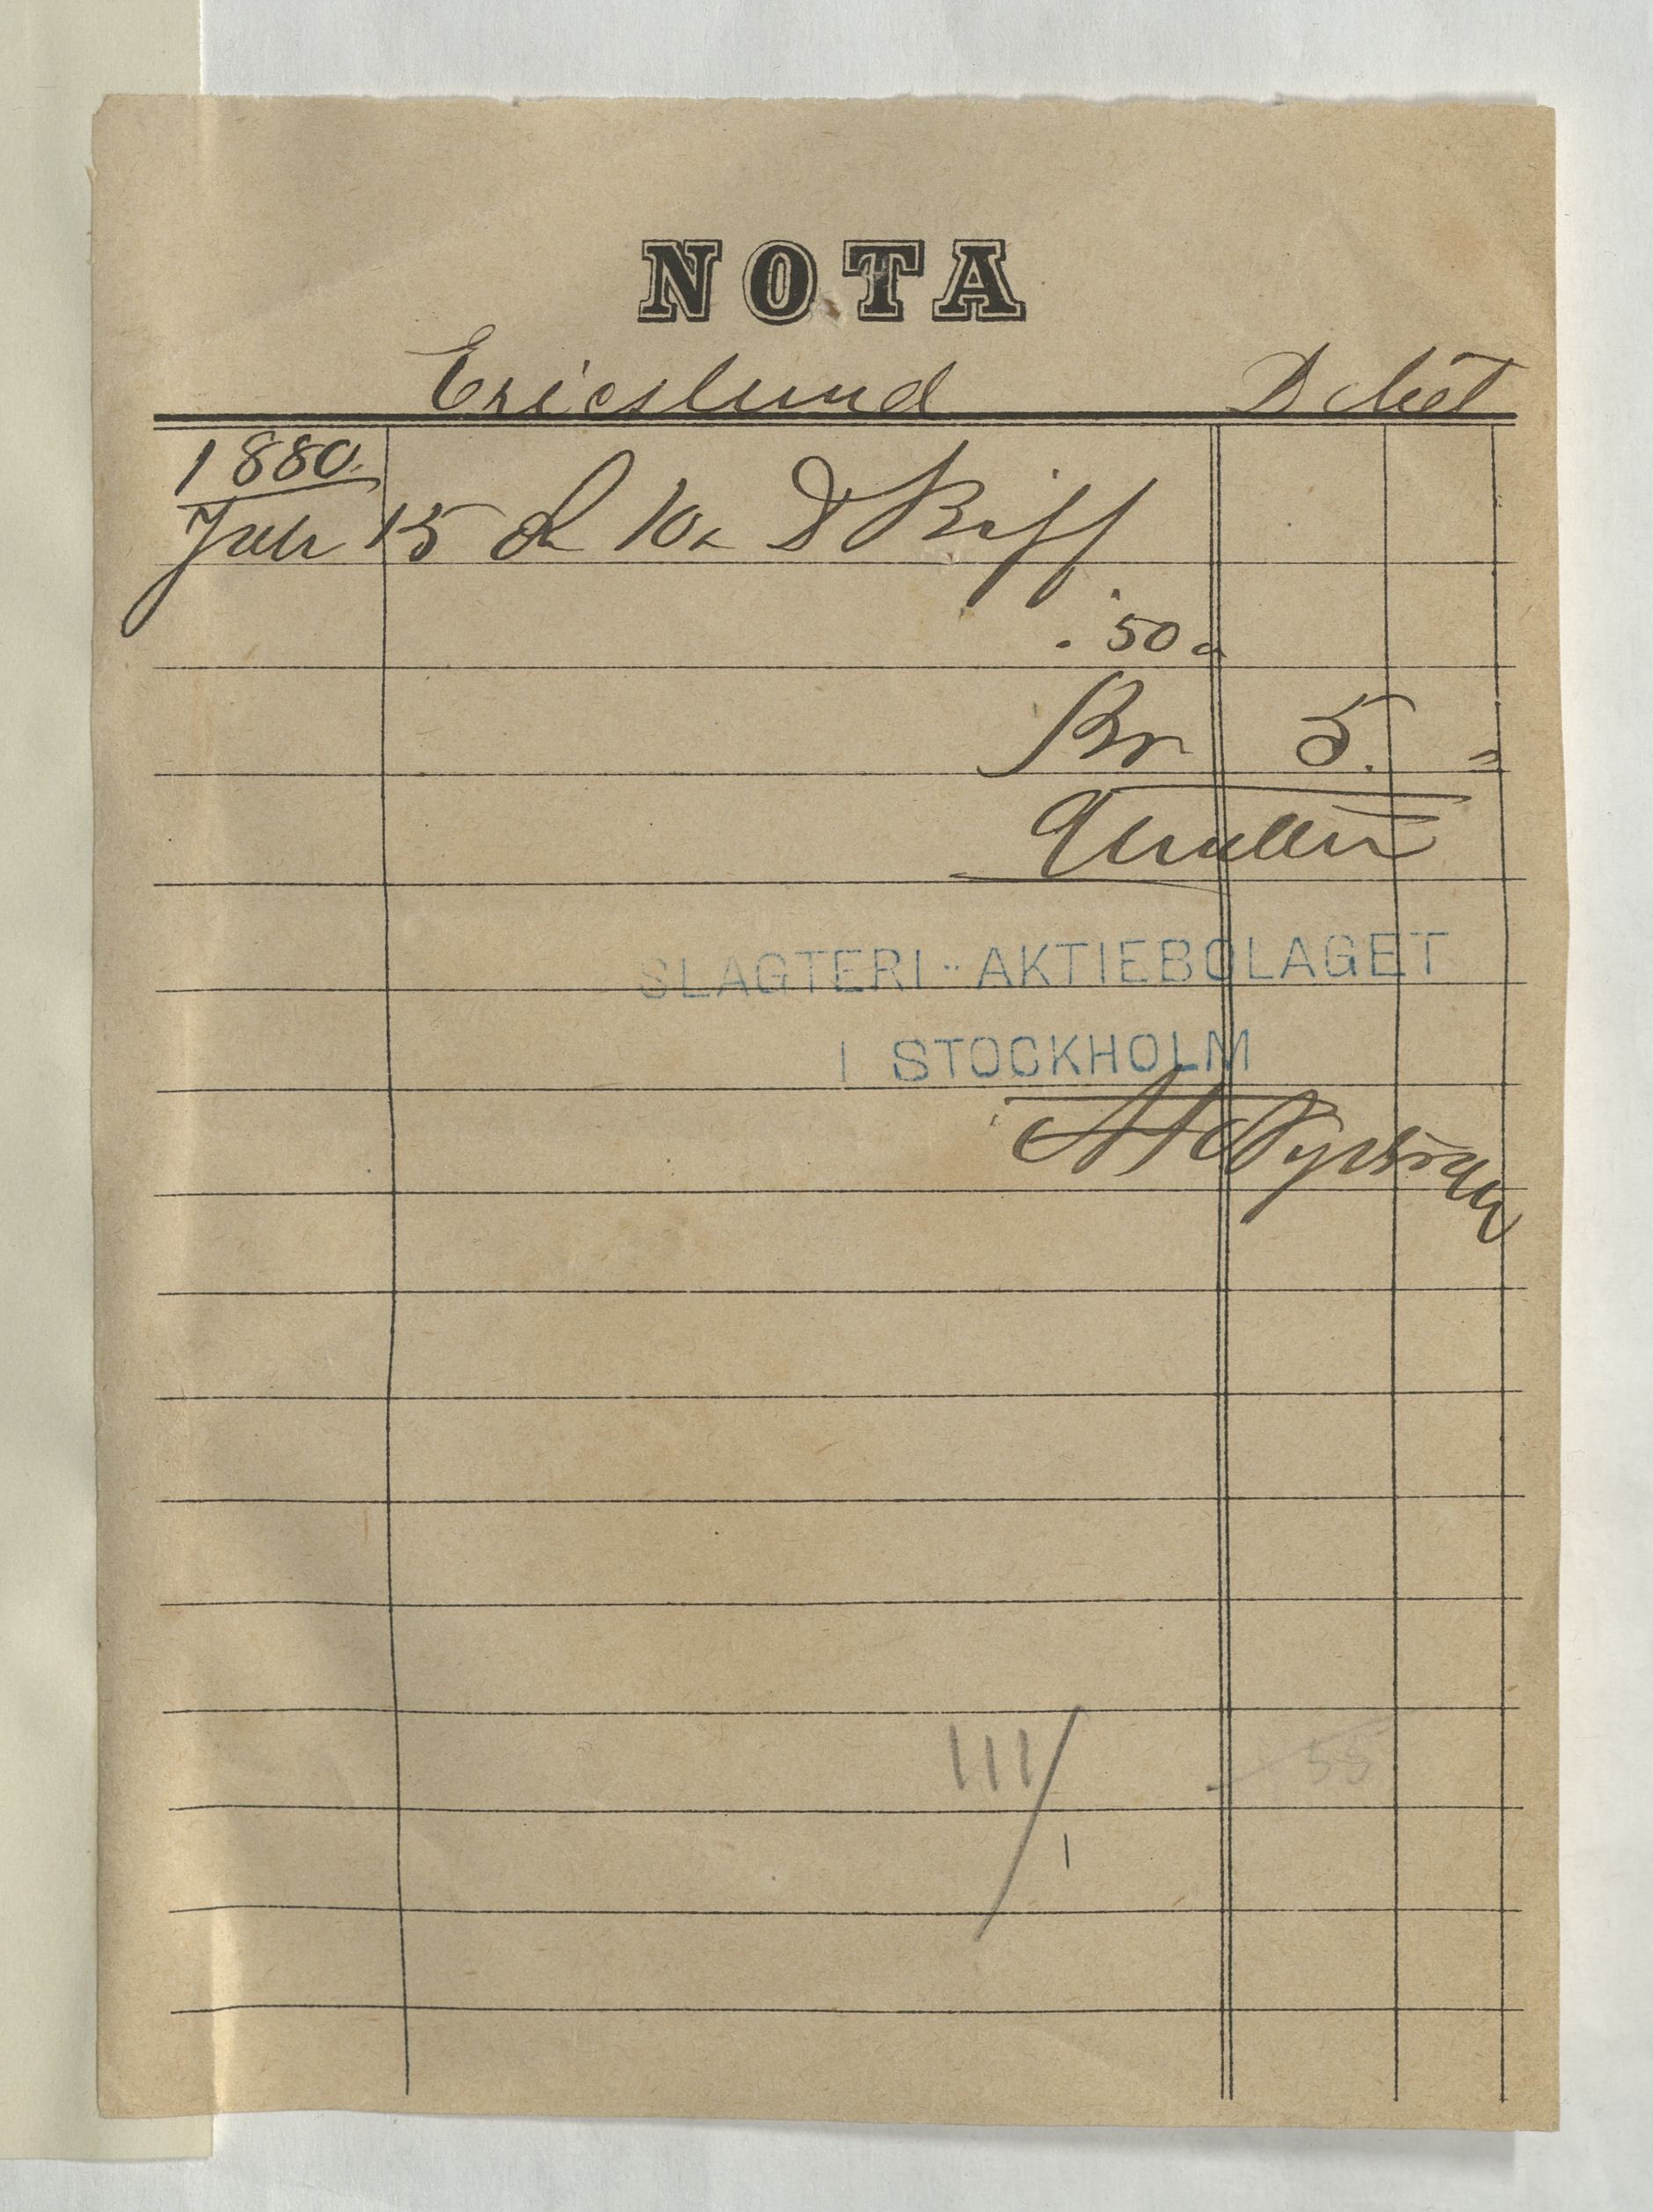 NOTA
Ericslund Debet
1880.
Juli 15 10 Biff
50
Kr 5.
Qvitteras
SLAGTERI-AKTIEBOLAGET
I STOCKHOLM
Nyström
111/1
55